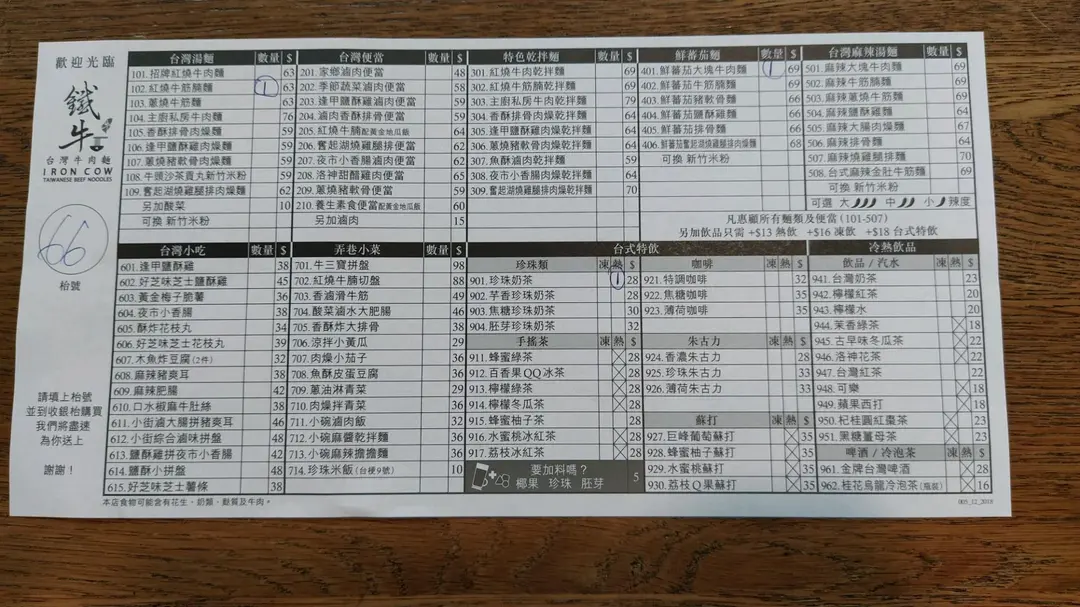 歡迎光臨
鐵牛
台灣牛肉麵
IRON COW
TAIWANESE BEEF NOODLES
66
枱號
請填上枱號
並到收銀枱購買
我們將盡速
為你送上
謝謝！
台灣湯麵 數量 $
101. 招牌紅燒牛肉麵 63
102. 紅燒牛筋腩麵 1 63
103. 蔥燒牛筋麵 63
104. 主廚私房牛肉麵 76
105. 香酥排骨肉燥麵 59
106. 逢甲鹽酥雞肉燥麵 59
107. 蔥燒豬軟骨肉燥麵 59
108. 牛頭沙茶貢丸新竹米粉 59
109. 奮起湖燒雞腿排肉燥麵 62
另加酸菜 10
可換 新竹米粉
台灣便當 數量 $
201. 家鄉滷肉便當 48
202. 季節蔬菜滷肉便當 58
203. 逢甲鹽酥雞滷肉便當 59
204. 滷肉香酥排骨便當 59
205. 紅燒牛腩配黃金地瓜飯 64
206. 奮起湖燒雞腿排便當 62
207. 夜市小香腸滷肉便當 62
208. 洛神甜醋雞肉便當 56
209. 蔥燒豬軟骨便當 59
210. 養生素食便當配黃金地瓜飯 60
另加滷肉 15
特色乾拌麵 數量 $
301. 紅燒牛肉乾拌麵 69
302. 紅燒牛筋腩乾拌麵 69
303. 主廚私房牛肉乾拌麵 79
304. 香酥排骨肉燥乾拌麵 64
305. 逢甲鹽酥雞肉燥乾拌麵 64
306. 蔥燒豬軟骨肉燥乾拌麵 64
307. 魚酥滷肉乾拌麵 59
308. 夜市小香腸滷肉乾拌麵 65
309. 奮起湖燒雞腿排肉燥乾拌麵 70
鮮蕃茄麵 數量 $
401. 鮮蕃茄大塊牛肉麵 1 69
402. 鮮蕃茄牛筋腩麵 69
403. 鮮蕃茄豬軟骨麵 66
404. 鮮蕃茄鹽酥雞麵 66
405. 鮮蕃茄排骨麵 66
406. 鮮蕃茄奮起湖燒雞腿排肉燥麵 68
可換 新竹米粉
台灣麻辣湯麵 數量 $
501. 麻辣大塊牛肉麵 69
502. 麻辣牛筋腩麵 69
503. 麻辣蔥燒牛筋麵 69
504. 麻辣鹽酥雞麵 64
505. 麻辣大腸肉燥麵 67
506. 麻辣排骨麵 64
507. 麻辣燒雞腿排肉燥麵 70
508. 台式麻辣金肚牛筋麵 69
可換 新竹米粉
可選 大 中 小 辣度
凡惠顧所有麵類及便當 (101-507)
另加飲品只需 +$13 熱飲 +$16 凍飲 +$18 台式特飲
台灣小吃 數量 $
601. 逢甲鹽酥雞 38
602. 好芝味芝士鹽酥雞 45
603. 黃金梅子脆薯 36
604. 夜市小香腸 38
605. 酥炸花枝丸 34
606. 好芝味芝士花枝丸 39
607. 木魚炸豆腐 (2件) 32
608. 麻辣豬爽耳 38
609. 麻辣肥腸 42
610. 口水椒麻牛肚絲 38
611. 小街滷大腸拼豬爽耳 46
612. 小街綜合滷味拼盤 48
613. 鹽酥雞拼夜市小香腸 42
614. 鹽酥小拼盤 48
615. 好芝味芝士薯條 38
弄巷小菜 數量 $
701. 牛三寶拼盤 98
702. 紅燒牛腩切盤 88
703. 香滷滑牛筋 49
704. 酸菜滷水大肥腸 46
705. 香酥炸大排骨 38
706. 涼拌小黃瓜 29
707. 肉燥小茄子 36
708. 魚酥皮蛋豆腐 36
709. 蔥油淋青菜 29
710. 肉燥拌青菜 36
711. 小碗滷肉飯 32
712. 小碗麻醬乾拌麵 36
713. 小碗麻辣擔擔麵 36
714. 珍珠米飯 (台梗9號) 10
台式特飲
珍珠類 凍 熱 $
901. 珍珠奶茶 1 28
902. 芋香珍珠奶茶 28
903. 焦糖珍珠奶茶 30
904. 胚芽珍珠奶茶 32
手搖茶 凍 熱 $
911. 蜂蜜綠茶 28
912. 百香果QQ冰茶 28
913. 檸檬綠茶 28
914. 檸檬冬瓜茶 28
915. 蜂蜜柚子茶 28
916. 水蜜桃冰紅茶 28
917. 荔枝冰紅茶 28
要加料嗎？
椰果 珍珠 胚芽 5
咖啡 凍 熱 $
921. 特調咖啡 32
922. 焦糖咖啡 35
923. 薄荷咖啡 35
朱古力 凍 熱 $
924. 香濃朱古力 28
925. 珍珠朱古力 33
926. 薄荷朱古力 33
蘇打 凍 熱 $
927. 巨峰葡萄蘇打 35
928. 蜂蜜柚子蘇打 35
929. 水蜜桃蘇打 35
930. 荔枝Q果蘇打 35
冷熱飲品
飲品 / 汽水 凍 熱 $
941. 台灣奶茶 23
942. 檸檬紅茶 20
943. 檸檬水 20
944. 茉香綠茶 18
945. 古早味冬瓜茶 22
946. 洛神花茶 22
947. 台灣紅茶 22
948. 可樂 18
949. 蘋果西打 18
950. 杞桂圓紅棗茶 23
951. 黑糖薑母茶 23
啤酒 / 冷泡茶 凍 熱 $
961. 金牌台灣啤酒 28
962. 桂花烏龍冷泡茶 (瓶裝) 16
本店食物可能含有花生、奶類、麩質及牛肉。
005_12_2018